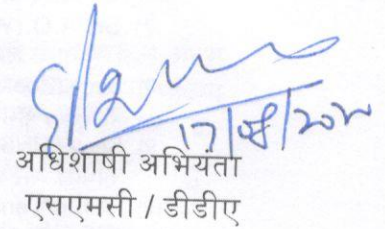 17/08/2020
अधिशाषी अभियंता
एसएमसी / डीडीए